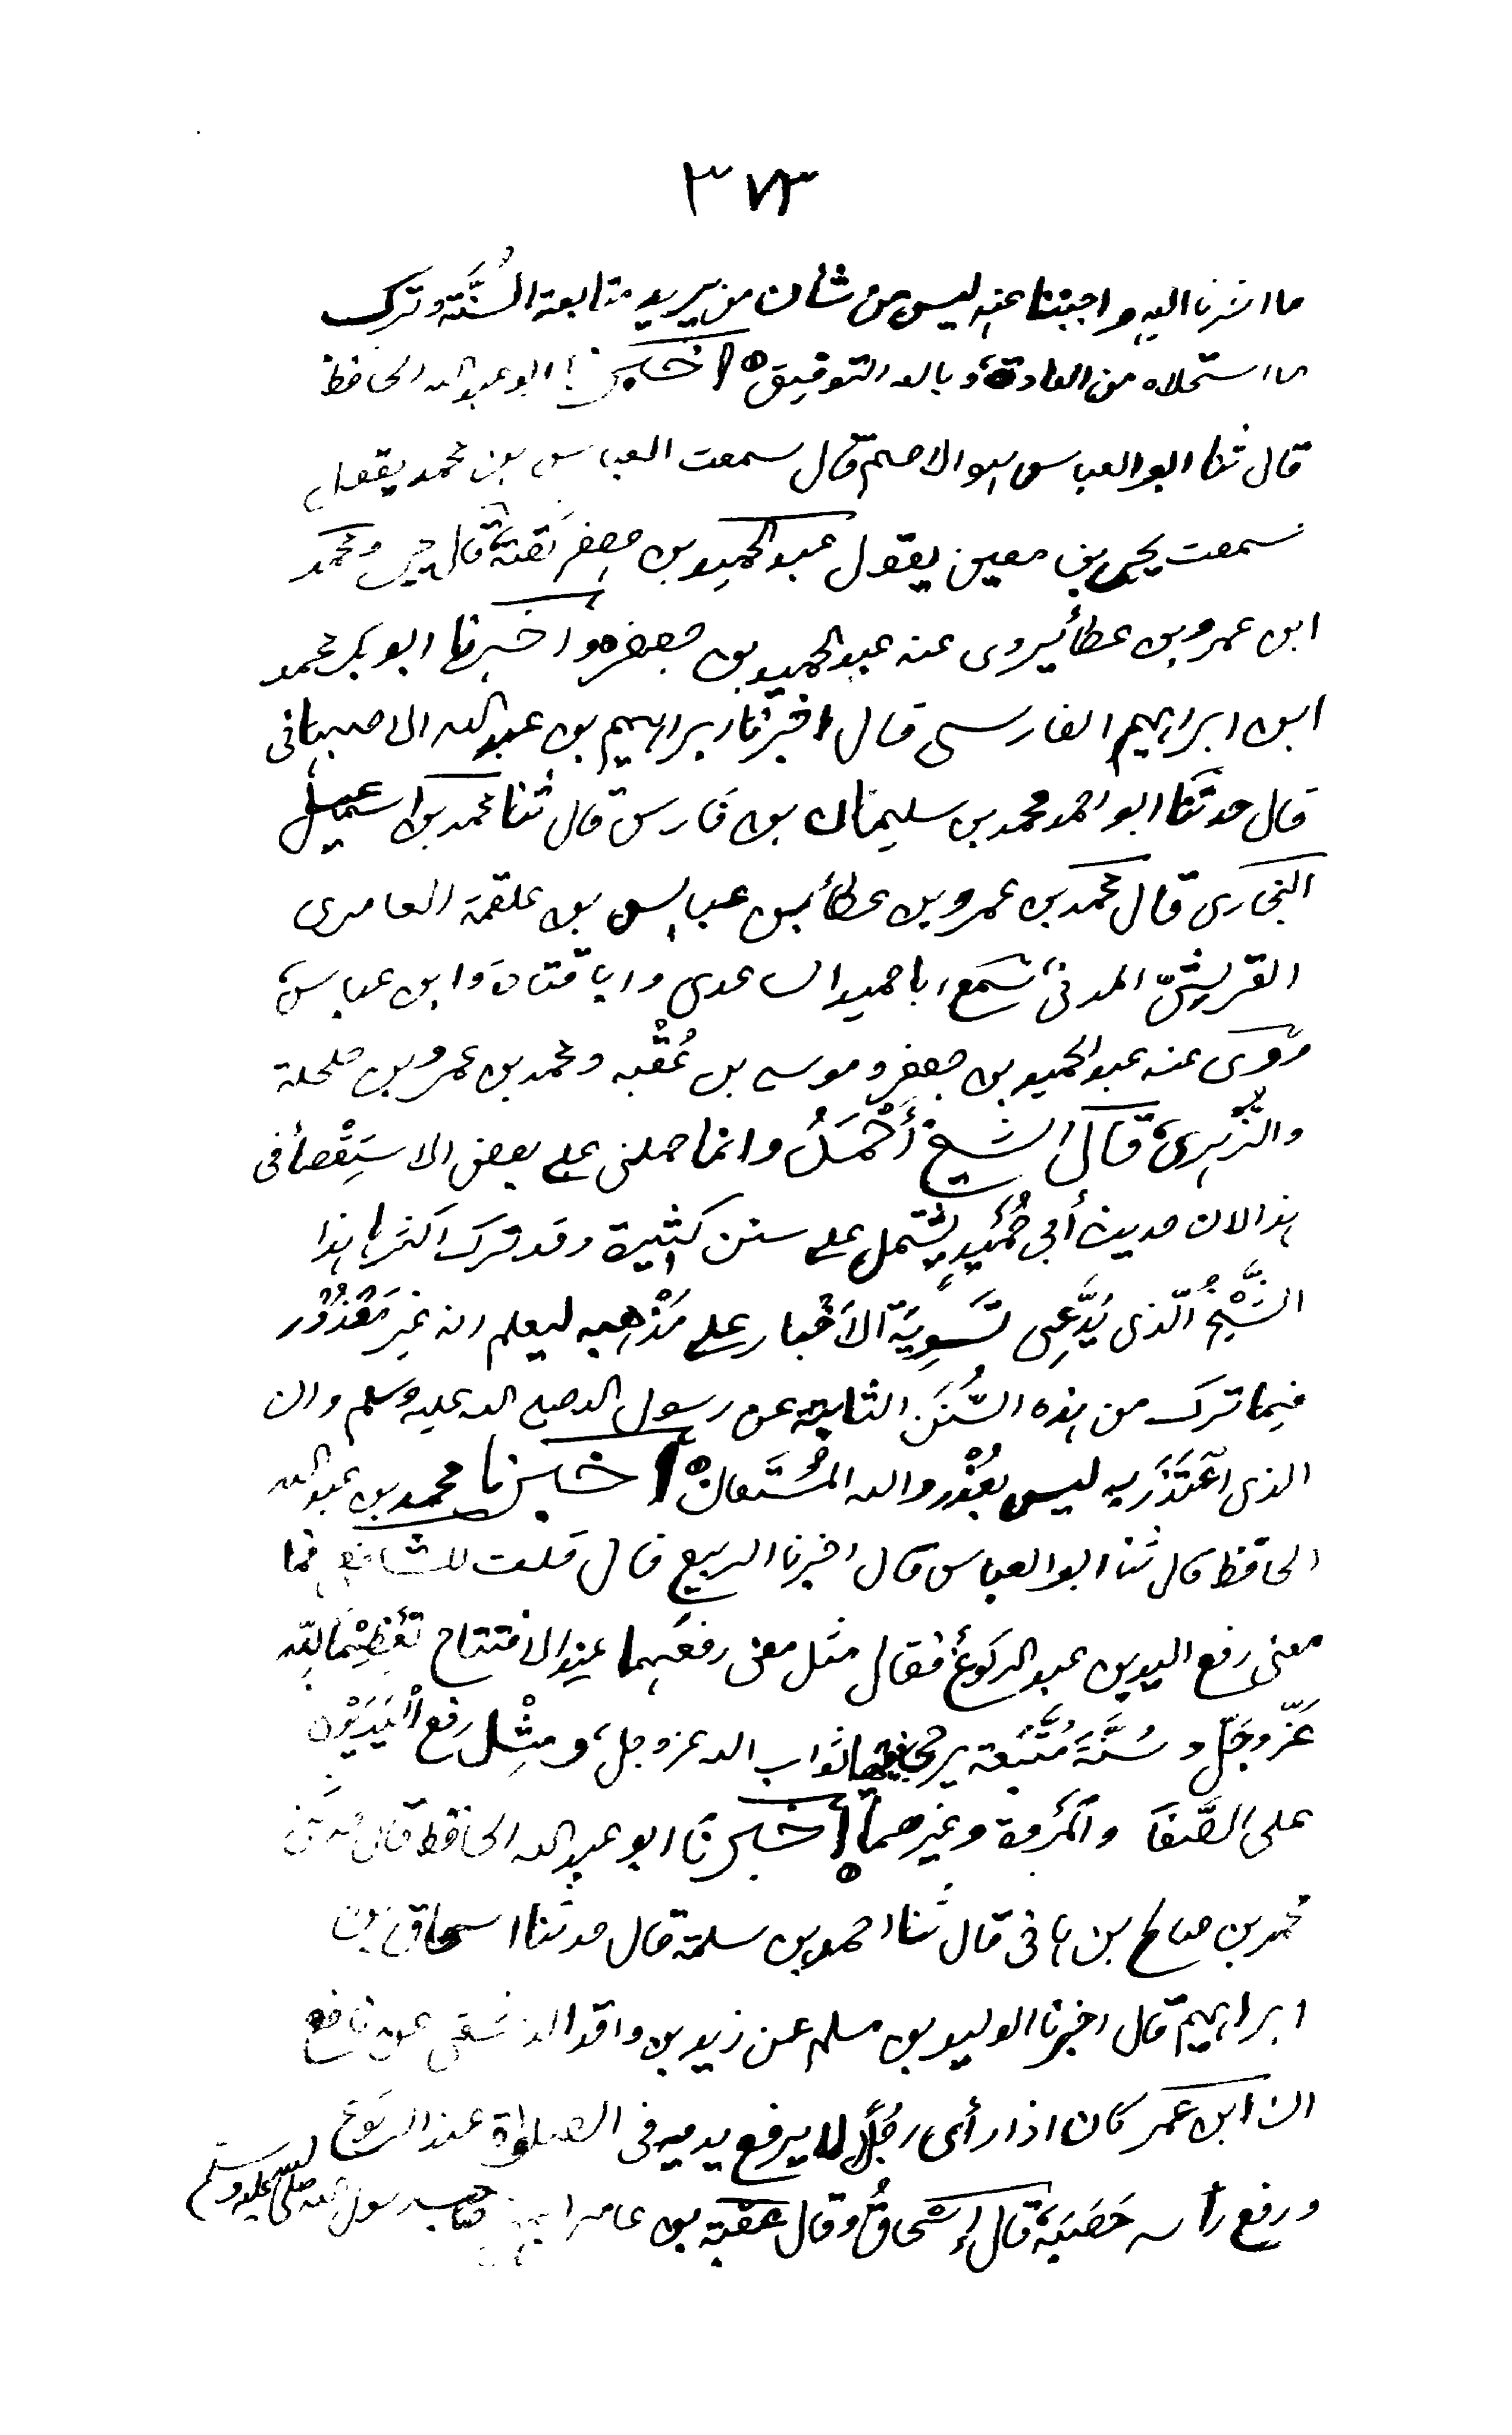 ٣٧٣
ما اشرنا اليه واجبنا عنه ليس من شأن من يريد متابعة السُّنَّة وترك
ما استحلاه من العادة، وبالله التوفيق ه اخبرنا ابو عبد الله الحافظ
قال ثنا ابو العباس هو الاصم قال سمعت العباس بن محمد يقول
سمعت يحيى بن معين يقول عبد الحميد بن جعفر ثقة، قال يحيى ومحمد
ابن عمرو بن عطأ يروى عنه عبد الحميد بن جعفر ه واخبرنا ابو بكر محمد
ابن ابراهيم الفارسي قال اخبرنا ابراهيم بن عبد الله الاصبهانى
قال حدثنا ابو احمد محمد بن سليمان بن فارس قال ثنا محمد بن اسمعيل
البخارى قال محمد بن عمرو بن عطأ بن عباس بن علقمة العامرى
القريشىّ المدنى، سَمع ابا حميد الساعدى وابا قتادة وابن عباس،
روى عنه عبد الحميد بن جعفر وموسى بن عُقْبه ومحمد بن عمرو بن حلحلة
والزُّهرى، قال الشيخ أَحْمَدُ وانما حملنى على بعض الاسْتِقْصأ فى
هذا لان حديث أبى حُمَيْدٍ يشتمل على سنن كثيرة وقد ترك اكثرها هذا
الشَّيْخُ الّذى يَدَّعِى تَسْوِيَة الاَخْبار على مَذْهبه ليعلم انه غير مَعْذُوْر
فيما ترك من هذه السُّنَن الثابتة عن رسول الله صلى الله عليه وسلم وان
الذى اعْتَذَرَ به ليس بعُذْر والله المُسْتَعان ه اخبرنا محمد بن عبد الله
الحافظ قال ثنا ابو العباس قال اخبرنا الربيع قال قلت للشافعى فما
معنى رفع اليدين عند الركوع، فقال مثل معنى رفعهما عند الافتتاح تَعْظِيْماً لِلّه
عَزّ وجَلّ وسُنَّةً مُتَّبَعة يرجى فيها ثواب الله عز وجل، ومِثْل رفع الْيَدَيْن
على الصَّفَا والمَرْوة وغيرهما ه اخبرنا ابو عبد الله الحافظ قال حدثنى
محمد بن صالح بن هانى قال ثنا احمد بن سلمة قال حدثنا اسحاق بن
ابراهيم قال اخبرنا الوليد بن مسلم عن زيد بن واقد الدمشقى عن نافع
ان ابن عمر كان اذا رأى رجُلاً لا يرفع يديه فى الصلوة عند الركوع
ورفع رأسه حَصَبَه، قال إسْحاقُ وقال عقبة بن عامر الجهنى صاحب رسول الله صلى الله عليه وسلم